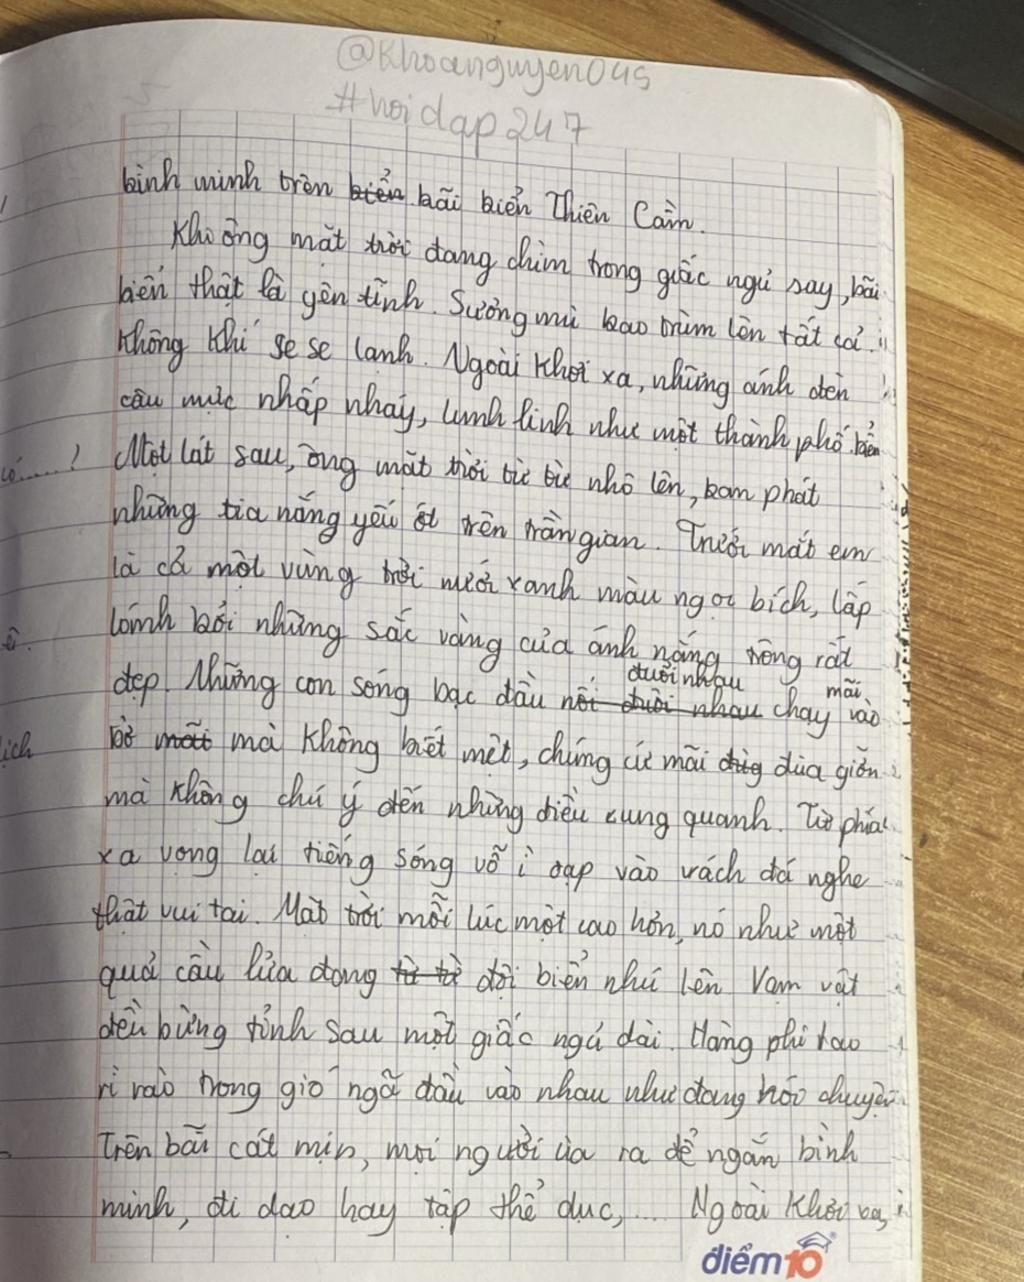 @Khoanguyen045
#hoidap247
bình minh trên biển bãi biển Thiên Cầm.
Khi ông mặt trời đang chìm trong giấc ngủ say, bãi
biển thật là yên tĩnh. Sương mù bao trùm lên tất cả.
Không khí se se lạnh. Ngoài khơi xa, những ánh đèn
câu mực nhấp nháy, lunh linh như một thành phố biển
Một lát sau, ông mặt trời từ từ nhô lên, ban phát
những tia nắng yếu ớt trên trần gian. Trước mắt em
là cả một vùng trời nước xanh màu ngọc bích, lấp
lómh bởi những sắc vàng của ánh nắng trông rất
đẹp. Những con sóng bạc đầu nối đuôi nhau đuổi nhau chạy mãi vào
bờ mãi mà không biết mệt, chúng cứ mãi đùa giỡn
mà không chú ý đến những điều xung quanh. Từ phía
xa vọng lại tiếng sóng vỗ ì oạp vào vách đá nghe
thật vui tai. Mặt trời mỗi lúc một cao hơn, nó như một
quả cầu lửa đang từ từ đội biển nhú lên Vạn vật
đều bừng tỉnh sau một giấc ngủ dài. Hàng phi lao
rì rào trong gió ngã đầu vào nhau như đang nói chuyện
Trên bãi cát mịn, mọi người ùa ra để ngắn bình
minh, đi dạo hay tập thể dục, .... Ngoài khơi xa,
có.....?
ịch
điểm10